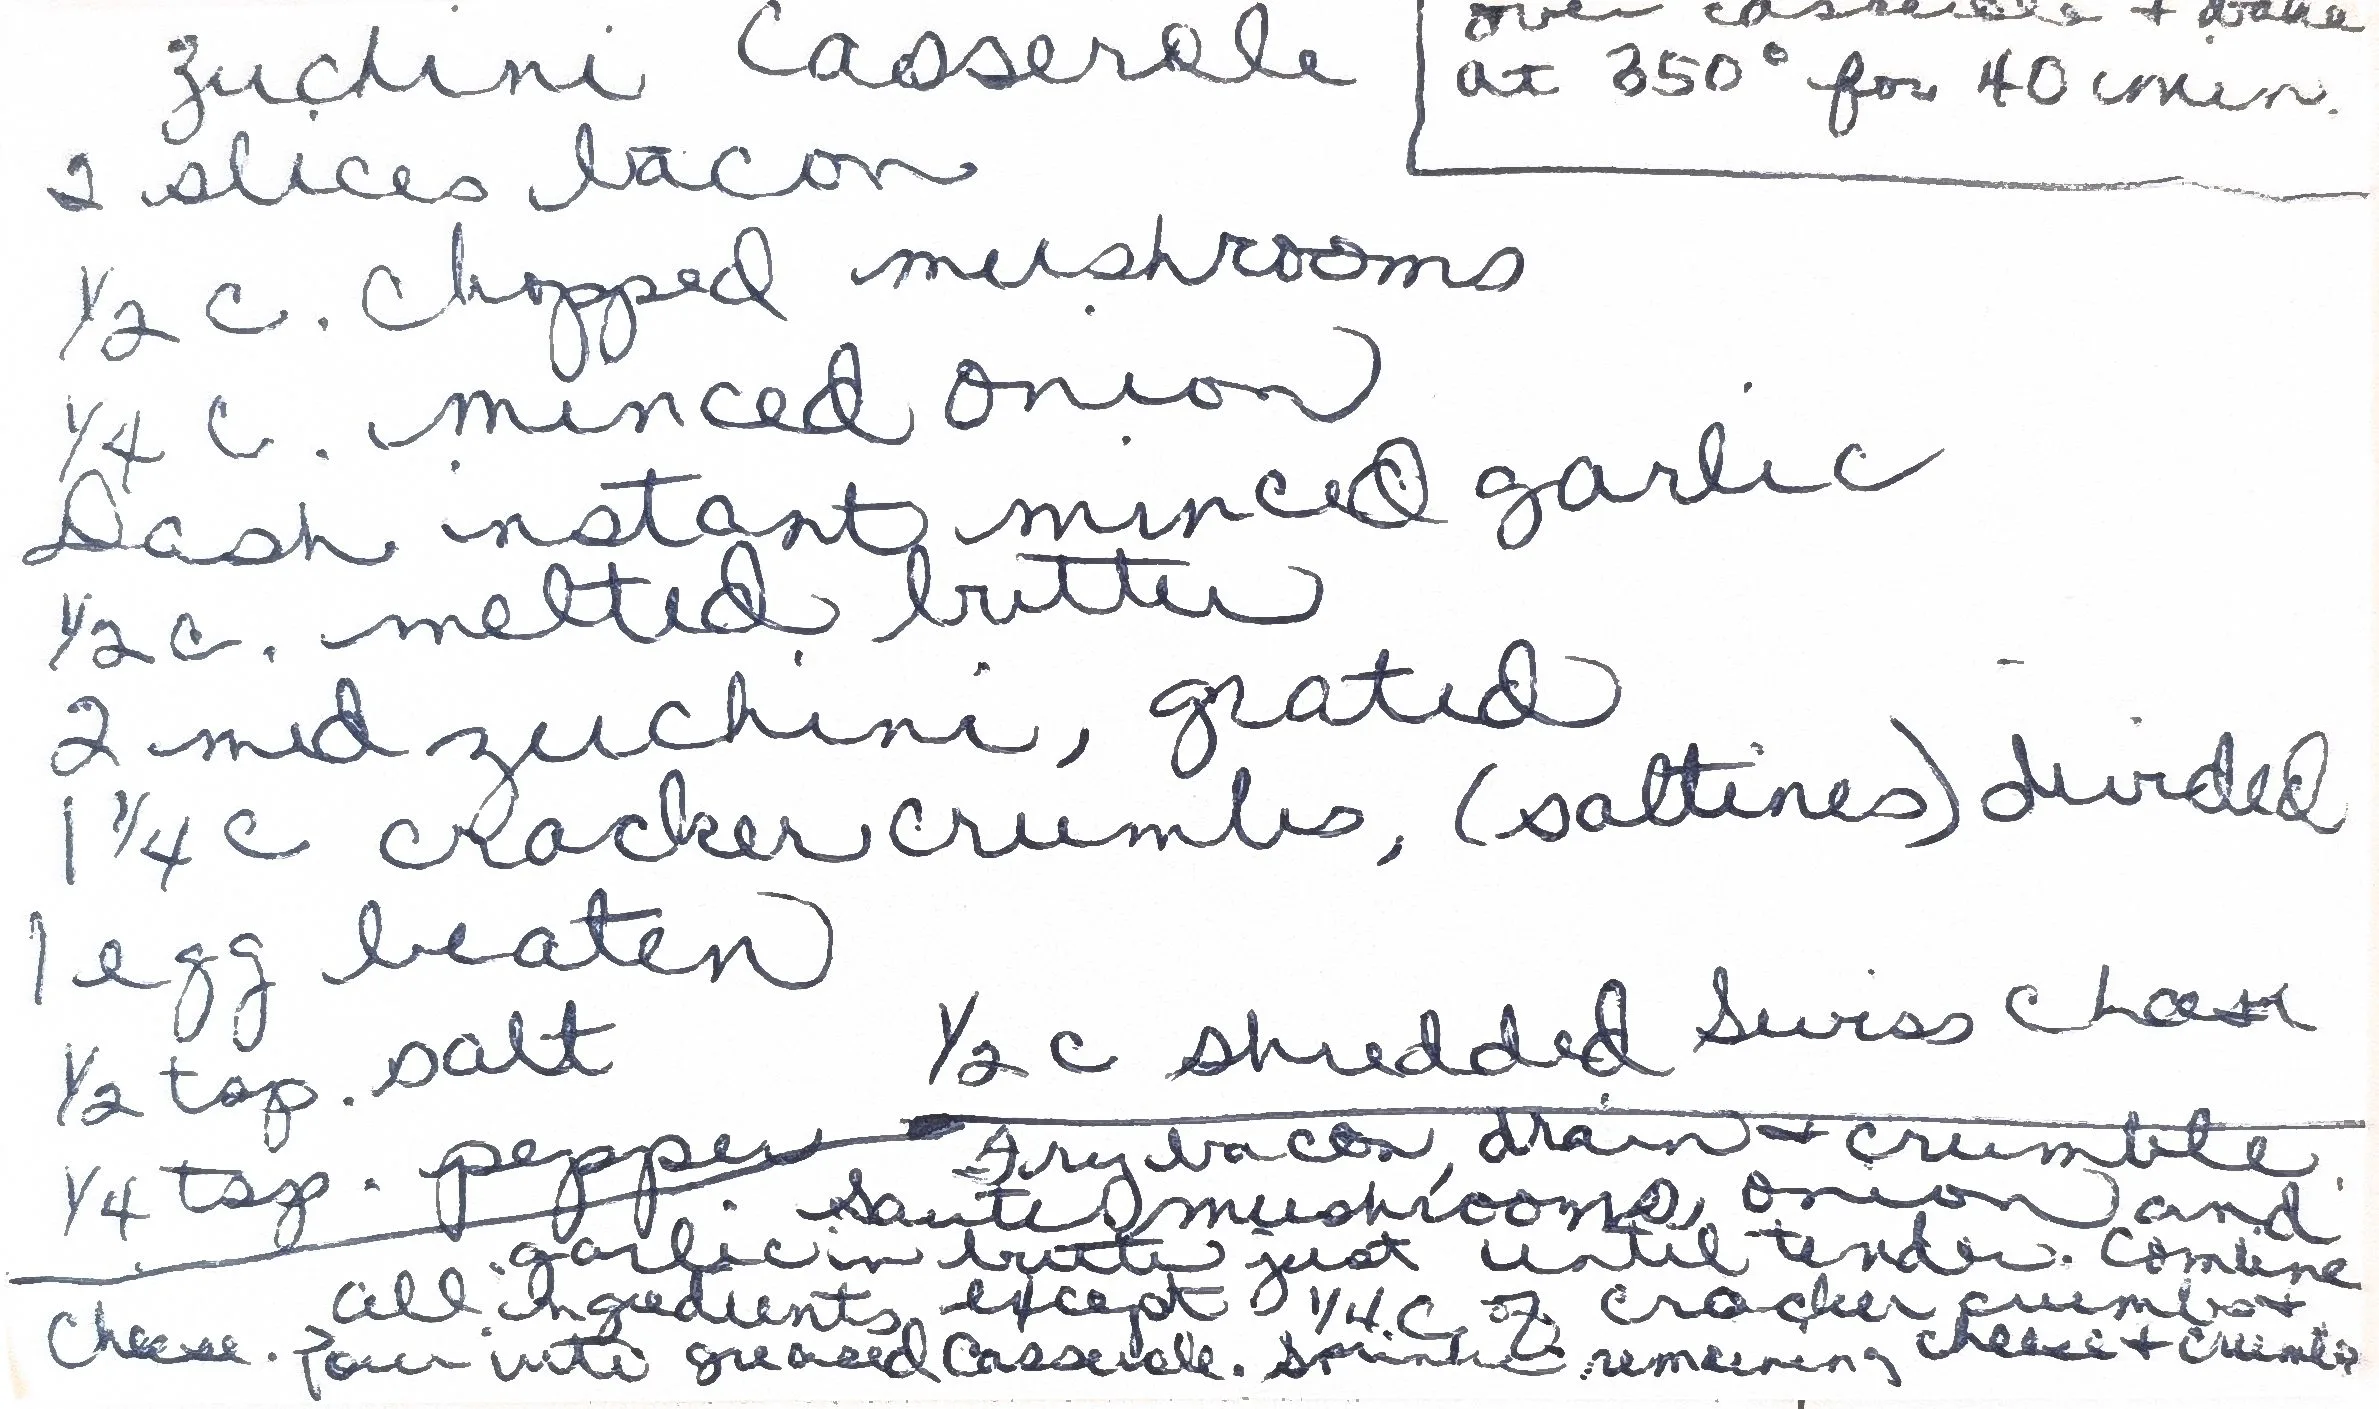 Zuchini Casserole
over casserole + bake
at 350° for 40 min.
2 slices bacon
1/2 c. chopped mushrooms
1/4 c. minced onion
Dash instant minced garlic
1/2 c. melted butter
2 med zuchini, grated
1 1/4 c cracker crumbs, (saltines) divided
1 egg beaten
1/2 tsp. salt
1/2 c shredded Swiss cheese
1/4 tsp. pepper
Fry bacon, drain + crumble.
Sauté mushrooms, onion and
garlic in butter just until tender. Combine
all ingredients except 1/4 c. of cracker crumbs +
cheese. Pour into greased casserole. Sprinkle remaining cheese + crumbs